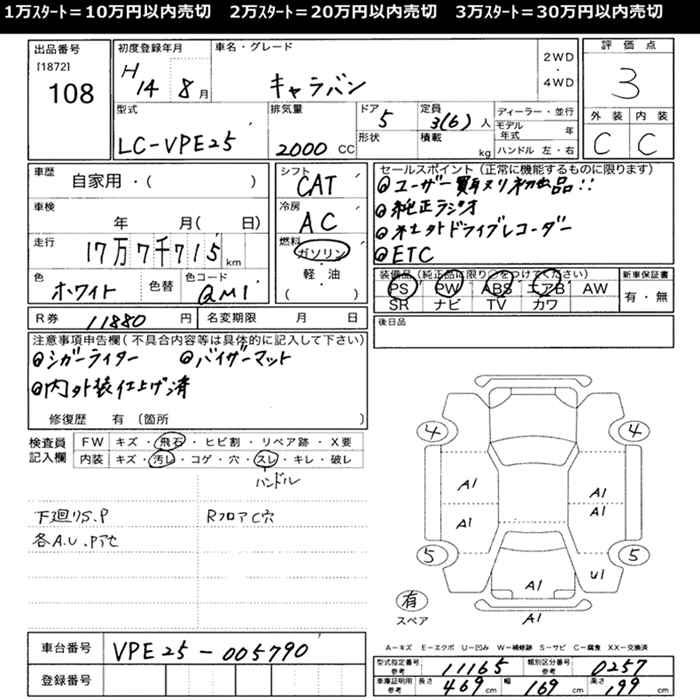 1万ｽﾀｰﾄ＝10万円以内売切　2万ｽﾀｰﾄ＝20万円以内売切　3万ｽﾀｰﾄ＝30万円以内売切
出品番号
[1872]
108
初度登録年月
H14 8月
車名・グレード
キャラバン
2WD
・
4WD
評価点
3
外装 内装
C C
型式
LC-VPE25
排気量
2000 CC
ドア
5
定員
3(6)人
形状
積載 kg
ディーラー・並行
モデル年式 年
ハンドル 左・右
車歴
自家用・( )
車検
年 月( 日)
走行
17万7千715km
色
ホワイト
色替
色コード
QM1
シフト
CAT
冷房
AC
燃料
ガソリン
・
軽・油
( )
セールスポイント(正常に機能するものに限ります)
◎ユーザー買取り初出品!!
◎純正ラジオ
◎社外ドライブレコーダー
◎ETC
装備品(純正品に限り○をつけてください)
PS PW ABS エアB AW
SR ナビ TV カワ
新車保証書
有・無
R券 11880円
名変期限 月 日
後日品
注意事項申告欄(不具合内容等は具体的に記入して下さい)
◎シガーライター ◎バイザーマット
◎内外装仕上げ済
修復歴 有(箇所 )
検査員
記入欄
FW キズ・飛石・ヒビ割・リペア跡・X要
内装 キズ・汚レ・コゲ・穴・スレ・キレ・破レ
ハンドル
下廻りS.P
RフロアC穴
各A.U.Pアセ
4 4
A1 A1
A1 A1
5 5
A1 U1
有
スペア
A1
A－キズ E－エクボ U－凹み W－補修跡 S－サビ C－腐食 XX－交換済
車台番号 VPE25-005790
登録番号
型式指定番号
参考
11165
類別区分番号
参考
0257
車庫証明用
参考
長さ 469cm 幅 169cm 高さ 199cm